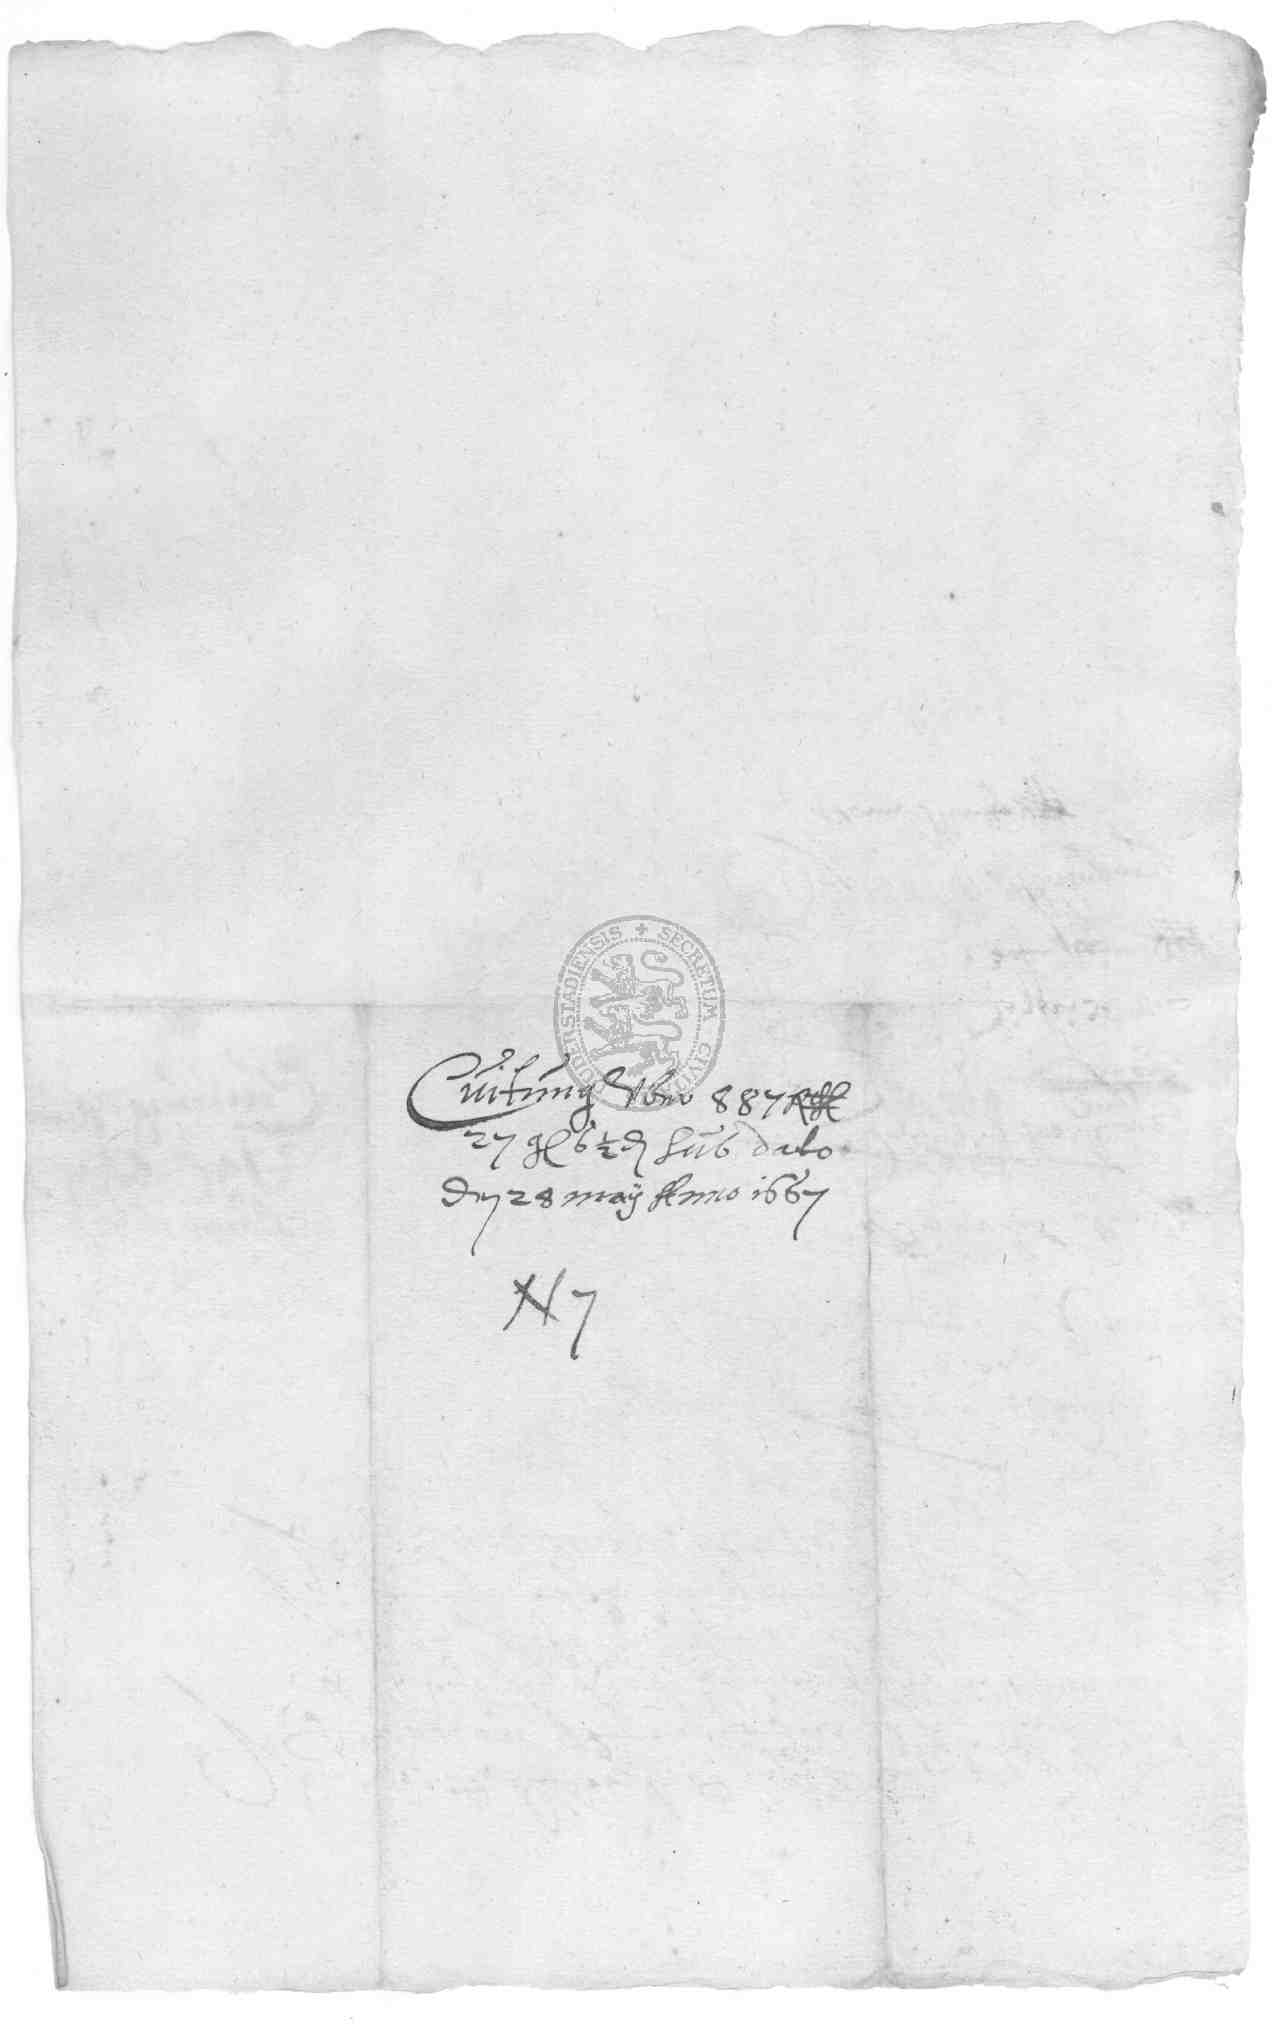 SECRETUM CIVIT ODERSTADIENSIS +
Cuitung Vber 887 Rthl
27 gl 6½ ₰ sub dato
den 28 maÿ Anno 1667
N 7